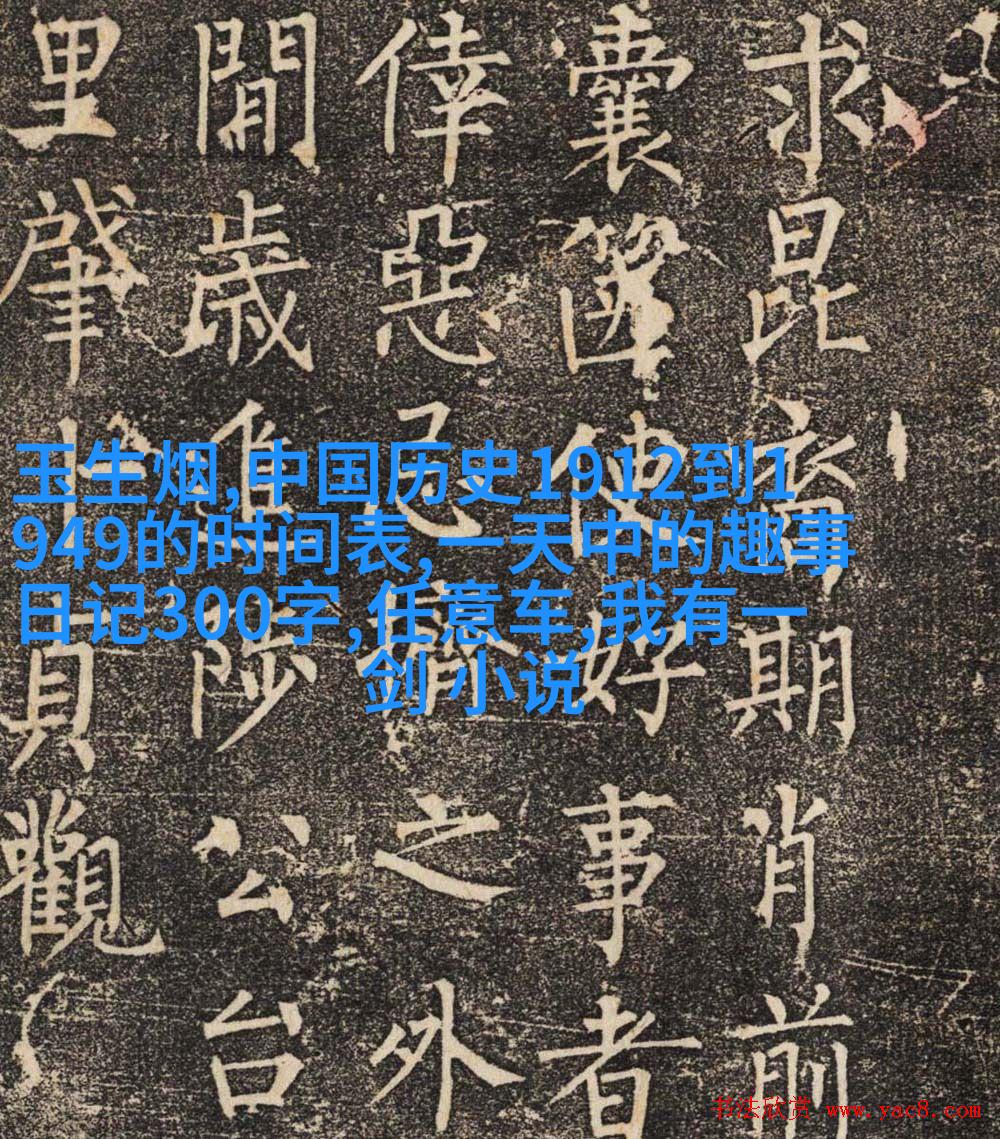 玉生烟,中国历史1912到1
949的时间表,一天中的趣事
日记300字,任意车,我有一
剑 小说
求昆期肖前
囊篋使好事者
倖惡忌之外
閒歲進陟公台
里肇貞觀
书法欣赏 www.yac8.com